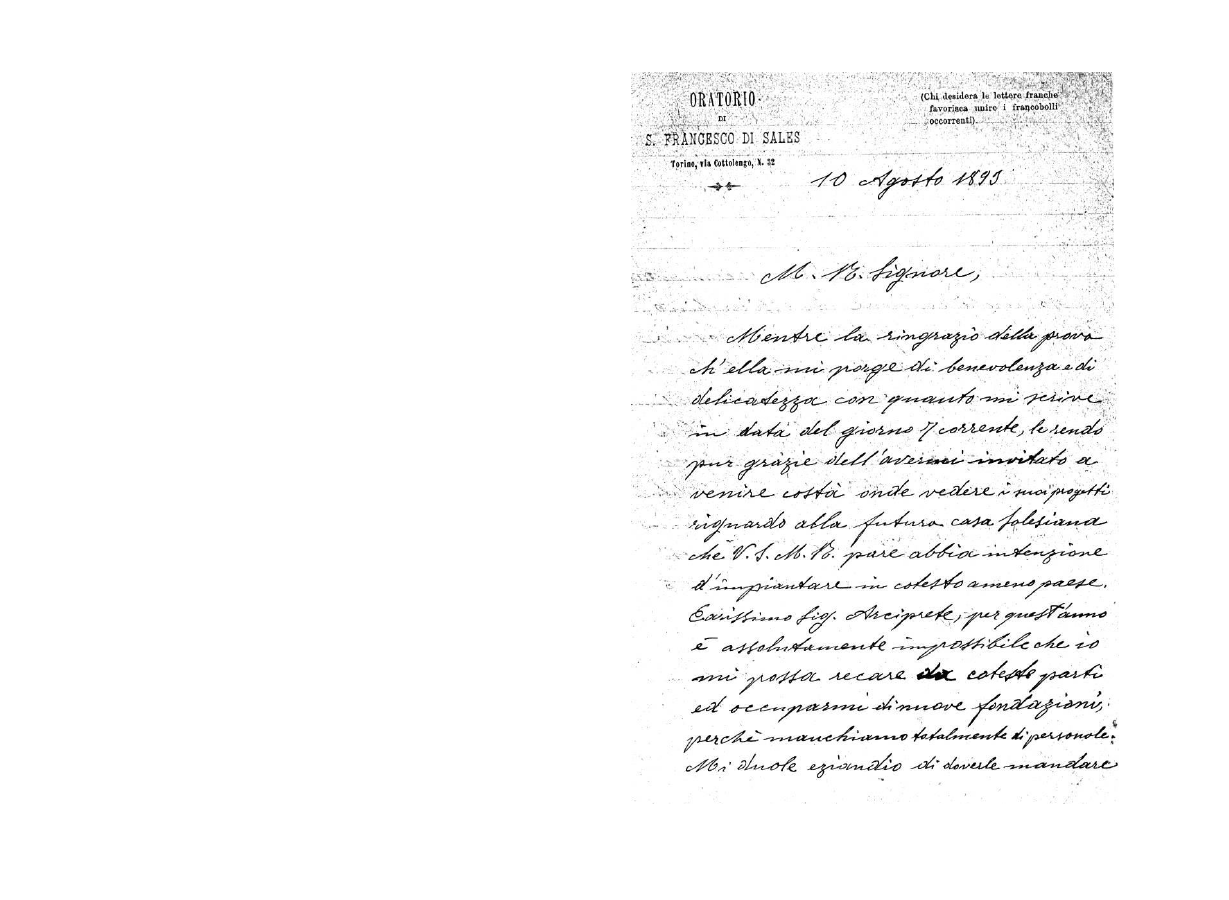 ORATORIO
DI
S. FRANCESCO DI SALES
Torino, via Cottolengo, N. 32
(Chi desidera le lettere franche
favorisca unire i francobolli
occorrenti).
10 Agosto 1895
M. R. Signore,
Mentre la ringrazio della prova
ch'ella mi porge di benevolenza e di
delicatezza con quanto mi scrive
in data del giorno 7 corrente, le rendo
pur grazie dell'avermi invitato a
venire costà onde vedere i suoi progetti
riguardo alla futura casa Salesiana
che V. S. M. R. pare abbia intenzione
d'impiantare in cotesto ameno paese.
Carissimo Sig. Arciprete, per quest'anno
è assolutamente impossibile che io
mi possa recare da coteste parti
ed occuparmi di nuove fondazioni,
perchè manchiamo totalmente di personale.
Mi duole eziandio di doverle mandare